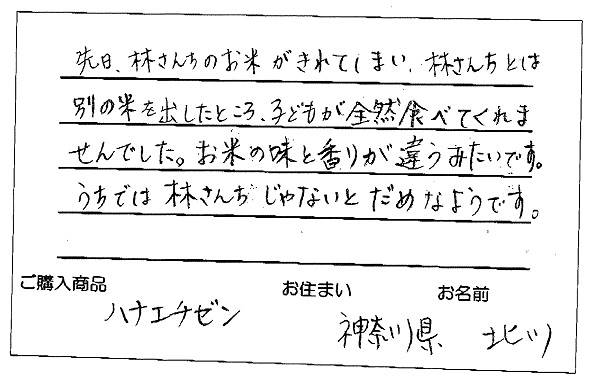 先日、林さんちのお米がきれてしまい、林さんちとは
別の米を出したところ、子どもが全然食べてくれま
せんでした。お米の味と香りが違うみたいです。
うちでは林さんちじゃないとだめなようです。
ご購入商品 お住まい お名前
ハナエチゼン 神奈川県 北川